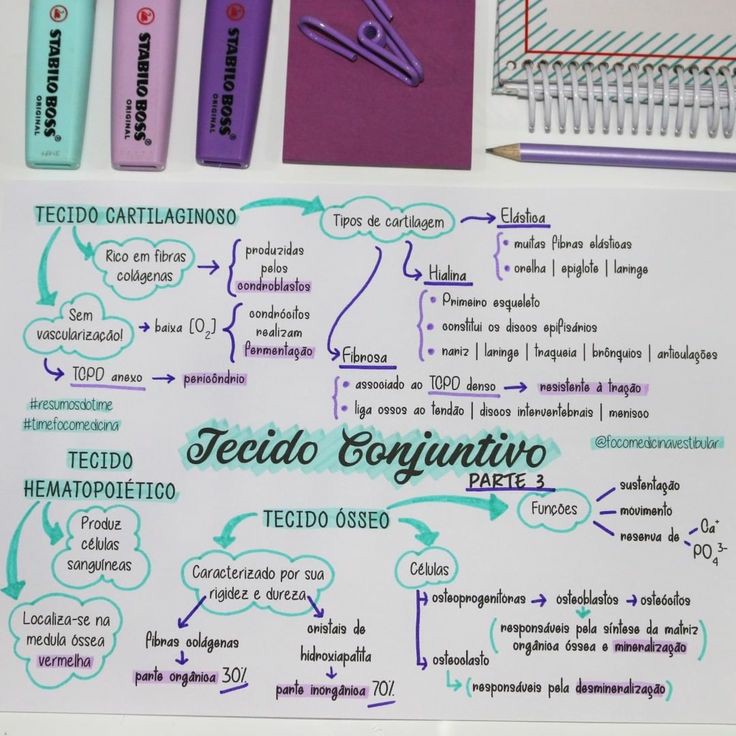 STABILO BOSS
ORIGINAL
STABILO BOSS
ORIGINAL
STABILO BOSS
ORIGINAL
TECIDO CARTILAGINOSO
Rico em fibras
colágenas
produzidas
pelos
condroblastos
Sem
vascularização!
baixa [O2]
condrócitos
realizam
fermentação
TCPD anexo
pericôndrio
Tipos de cartilagem
Elástica
muitas fibras elásticas
orelha | epiglote | laringe
Hialina
Primeiro esqueleto
constitui os discos epifisários
nariz | laringe | traqueia | brônquios | articulações
Fibrosa
associado ao TCPD denso
resistente à tração
liga ossos ao tendão | discos intervertebrais | menisco
#resumosdotime
#timefocomedicina
Tecido Conjuntivo
PARTE 3
@focomedicinavestibular
TECIDO
HEMATOPOIÉTICO
Produz
células
sanguíneas
Localiza-se na
medula óssea
vermelha
TECIDO ÓSSEO
Caracterizado por sua
rigidez e dureza
fibras colágenas
parte orgânica 30%
cristais de
hidroxiapatita
parte inorgânica 70%
Funções
sustentação
movimento
reserva de
Ca+
PO4 3-
Células
osteoprogenitoras
osteoblastos
osteócitos
(responsáveis pela síntese da matriz
orgânica óssea e mineralização)
osteoclasto
(responsáveis pela desmineralização)